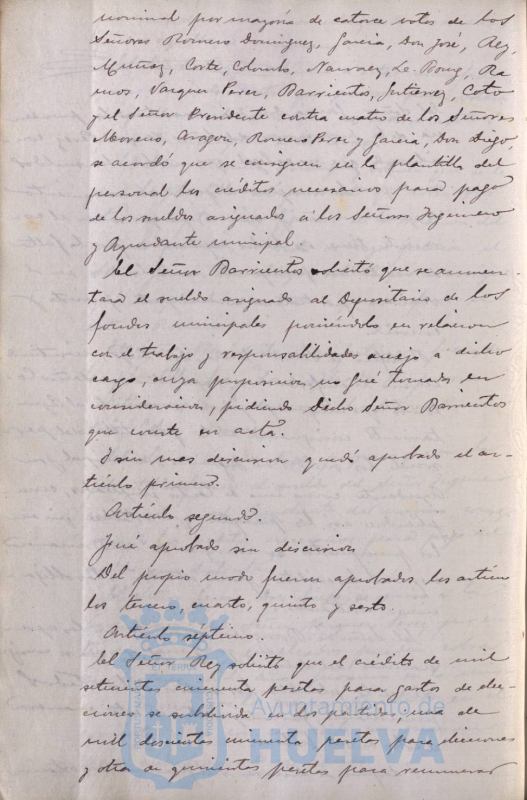 nominal por mayoría de catorce votos de los
Señores Romero Dominguez, Garcia, Don José, Rey,
Muñoz, Corte, Colombo, Narvaez, Le-Bourg, Ra
mos, Vazquez Perez, Barrientos, Gutierrez, Coto
y el Señor Presidente contra cuatro de los Señores
Moreno, Aragon, Romero Perez y Garcia, Don Diego,
se acordó que se consignen en la plantilla del
personal los créditos necesarios para pago
de los sueldos asignados á los Señores Ingeniero
y Ayudante municipal
El Señor Barrientos solicitó que se aumen
tara el sueldo asignado al Depositario de los
fondos municipales poniéndolo en relacion
con el trabajo y responsabilidades anejo á dicho
cargo, cuya proposicion no fué tomada en
consideracion, pidiendo dicho Señor Barrientos
que conste en acta.
Y sin mas discusion quedó aprobado el ar-
tículo primero.
Artículo segundo.
Fué aprobado sin discusion
Del propio modo fueron aprobados los artícu
los tercero, cuarto, quinto y sexto.
Artículo séptimo.
El Señor Rey solicitó que el crédito de mil
setecientas cincuenta pesetas para gastos de elec-
ciones se subdivida en dos partidas, una de
mil doscientas cincuenta pesetas para elecciones
y otra de quinientas pesetas para remunerar
Ayuntamiento de
HUELVA